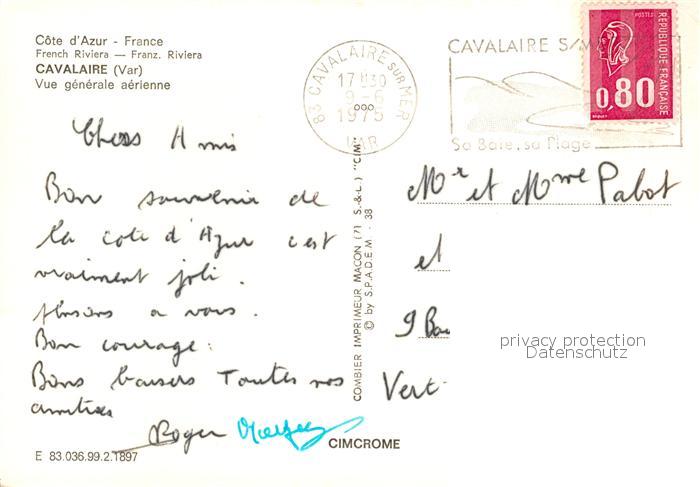 Côte d'Azur - France
French Riviera — Franz. Riviera
CAVALAIRE (Var)
Vue générale aérienne
83 CAVALAIRE SUR MER
17H30
9-6
1975
VAR
CAVALAIRE S/M
Sa Baie, sa Plage
POSTES
RÉPUBLIQUE FRANÇAISE
0,80
Chers Amis
Bon souvenir de
la cote d'Azur c'est
vraiment joli.
pensons a vous.
Bon courage.
Bons baisers Toutes nos
amities
Roger
COMBIER IMPRIMEUR MACON (71 S.-&-L.) "CIM"
© by S.P.A.D.E.M. - 38
Mr et Mme Pabot
et
9 Bau
Vert
privacy protection
Datenschutz
CIMCROME
E 83.036.99.2.1897